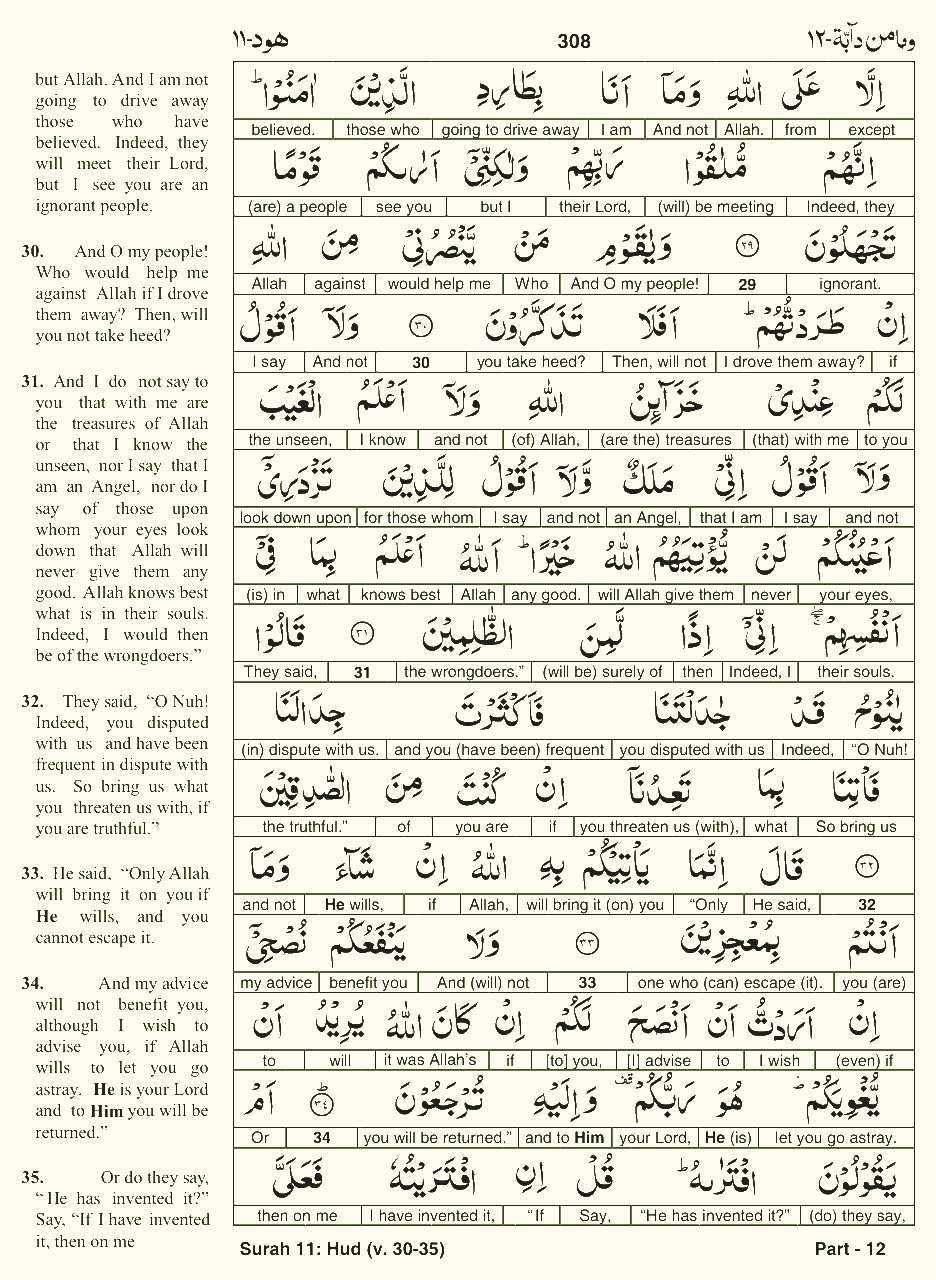 هود-١١ 308 ومامن دآبّة-١٢
but Allah. And I am not
going to drive away
those who have
believed. Indeed, they
will meet their Lord,
but I see you are an
ignorant people.
30. And O my people!
Who would help me
against Allah if I drove
them away? Then, will
you not take heed?
31. And I do not say to
you that with me are
the treasures of Allah
or that I know the
unseen, nor I say that I
am an Angel, nor do I
say of those upon
whom your eyes look
down that Allah will
never give them any
good. Allah knows best
what is in their souls.
Indeed, I would then
be of the wrongdoers.”
32. They said, “O Nuh!
Indeed, you disputed
with us and have been
frequent in dispute with
us. So bring us what
you threaten us with, if
you are truthful.”
33. He said, “Only Allah
will bring it on you if
He wills, and you
cannot escape it.
34. And my advice
will not benefit you,
although I wish to
advise you, if Allah
wills to let you go
astray. He is your Lord
and to Him you will be
returned.”
35. Or do they say,
“He has invented it?”
Say, “If I have invented
it, then on me
اِلَّا عَلَى اللّٰهِ وَمَآ اَنَا بِطَارِدِ الَّذِيْنَ اٰمَنُوْا ؕ
believed. those who going to drive away I am And not Allah. from except
اِنَّهُمْ مُّلٰقُوْا رَبِّهِمْ وَلٰكِنِّيْٓ اَرٰىكُمْ قَوْمًا
(are) a people see you but I their Lord, (will) be meeting Indeed, they
تَجْهَلُوْنَ ٢٩ وَيٰقَوْمِ مَنْ يَّنْصُرُنِيْ مِنَ اللّٰهِ
Allah against would help me Who And O my people! 29 ignorant.
اِنْ طَرَدْتُّهُمْ ؕ اَفَلَا تَذَكَّرُوْنَ ٣٠ وَلَآ اَقُوْلُ
I say And not 30 you take heed? Then, will not I drove them away? if
لَكُمْ عِنْدِيْ خَزَآئِنُ اللّٰهِ وَلَآ اَعْلَمُ الْغَيْبَ
the unseen, I know and not (of) Allah, (are the) treasures (that) with me to you
وَلَآ اَقُوْلُ اِنِّيْ مَلَكٌ وَّلَآ اَقُوْلُ لِلَّذِيْنَ تَزْدَرِيْٓ
look down upon for those whom I say and not an Angel, that I am I say and not
اَعْيُنُكُمْ لَنْ يُّؤْتِيَهُمُ اللّٰهُ خَيْرًا ؕ اَللّٰهُ اَعْلَمُ بِمَا فِيْٓ
(is) in what knows best Allah any good. will Allah give them never your eyes,
اَنْفُسِهِمْ ۖۚ اِنِّيْٓ اِذًا لَّمِنَ الظّٰلِمِيْنَ ٣١ قَالُوْا
They said, 31 the wrongdoers.” (will be) surely of then Indeed, I their souls.
يٰنُوْحُ قَدْ جٰدَلْتَنَا فَاَكْثَرْتَ جِدَالَنَا
(in) dispute with us. and you (have been) frequent you disputed with us Indeed, “O Nuh!
فَاْتِنَا بِمَا تَعِدُنَآ اِنْ كُنْتَ مِنَ الصّٰدِقِيْنَ
the truthful.” of you are if you threaten us (with), what So bring us
٣٢ قَالَ اِنَّمَا يَاْتِيْكُمْ بِهِ اللّٰهُ اِنْ شَآءَ وَمَآ
and not He wills, if Allah, will bring it (on) you “Only He said, 32
اَنْتُمْ بِمُعْجِزِيْنَ ٣٣ وَلَا يَنْفَعُكُمْ نُصْحِيْٓ
my advice benefit you And (will) not 33 one who (can) escape (it). you (are)
اِنْ اَرَدْتُّ اَنْ اَنْصَحَ لَكُمْ اِنْ كَانَ اللّٰهُ يُرِيْدُ اَنْ
to will it was Allah’s if [to] you, [I] advise to I wish (even) if
يُّغْوِيَكُمْ ؕ هُوَ رَبُّكُمْ ۫ وَاِلَيْهِ تُرْجَعُوْنَ ٣٤ اَمْ
Or 34 you will be returned.” and to Him your Lord, He (is) let you go astray.
يَقُوْلُوْنَ افْتَرٰىهُ ؕ قُلْ اِنِ افْتَرَيْتُهٗ فَعَلَيَّ
then on me I have invented it, “If Say, “He has invented it?” (do) they say,
Surah 11: Hud (v. 30-35) Part - 12